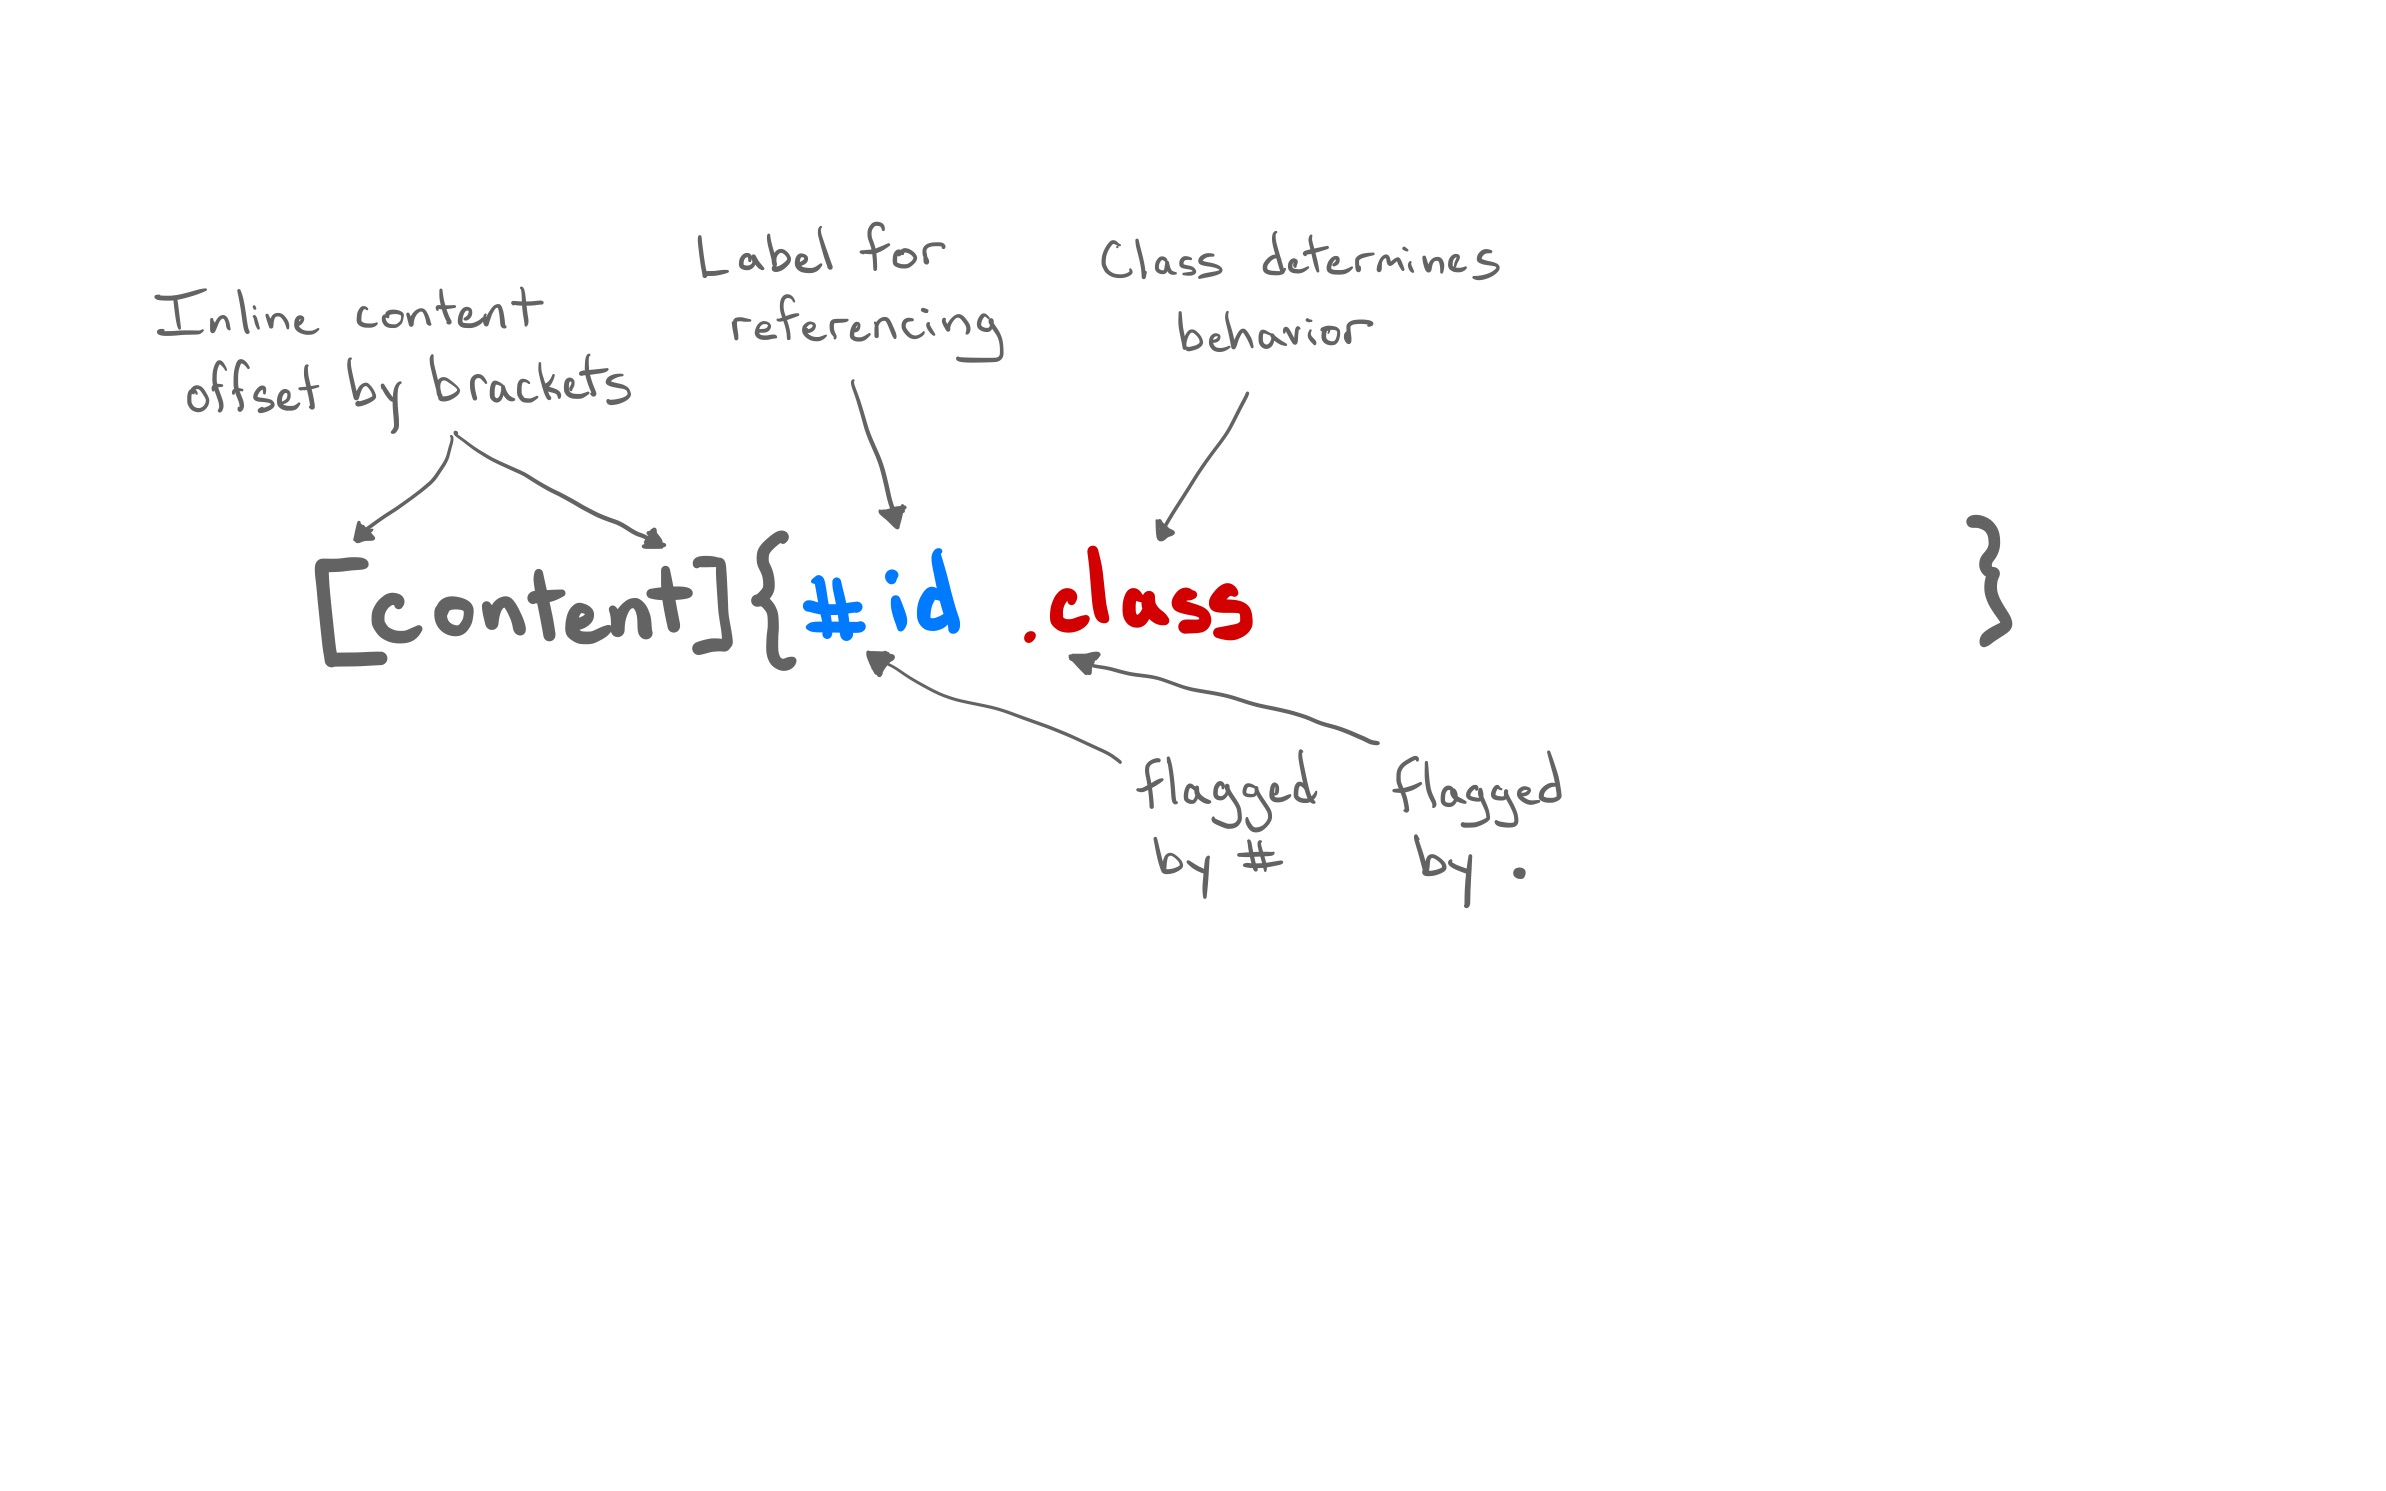 Inline content
offset by brackets
Label for
referencing
Class determines
behavior
[content]{#id .class }
flagged
by #
flagged
by .